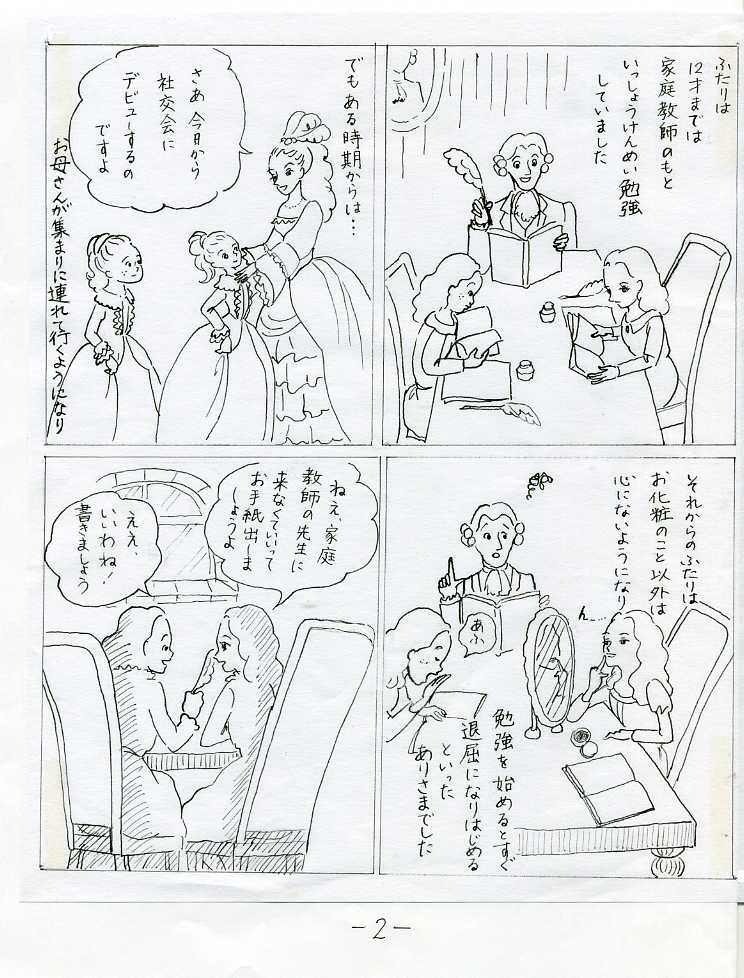 ふたりは
12才までは
家庭教師のもと
いっしょうけんめい勉強
していました
でもある時期からは…
さあ今日から
社交会に
デビューするの
ですよ
お母さんが集まりに連れて行くようになり
それからのふたりは
お化粧のこと以外は
心にないようになり
ん…
あふ
勉強を始めるとすぐ
退屈になりはじめる
といった
ありさまでした
ねえ、家庭
教師の先生に
来なくていいって
お手紙出しま
しょうよ
ええ、
いいわね!
書きましょう
-2-